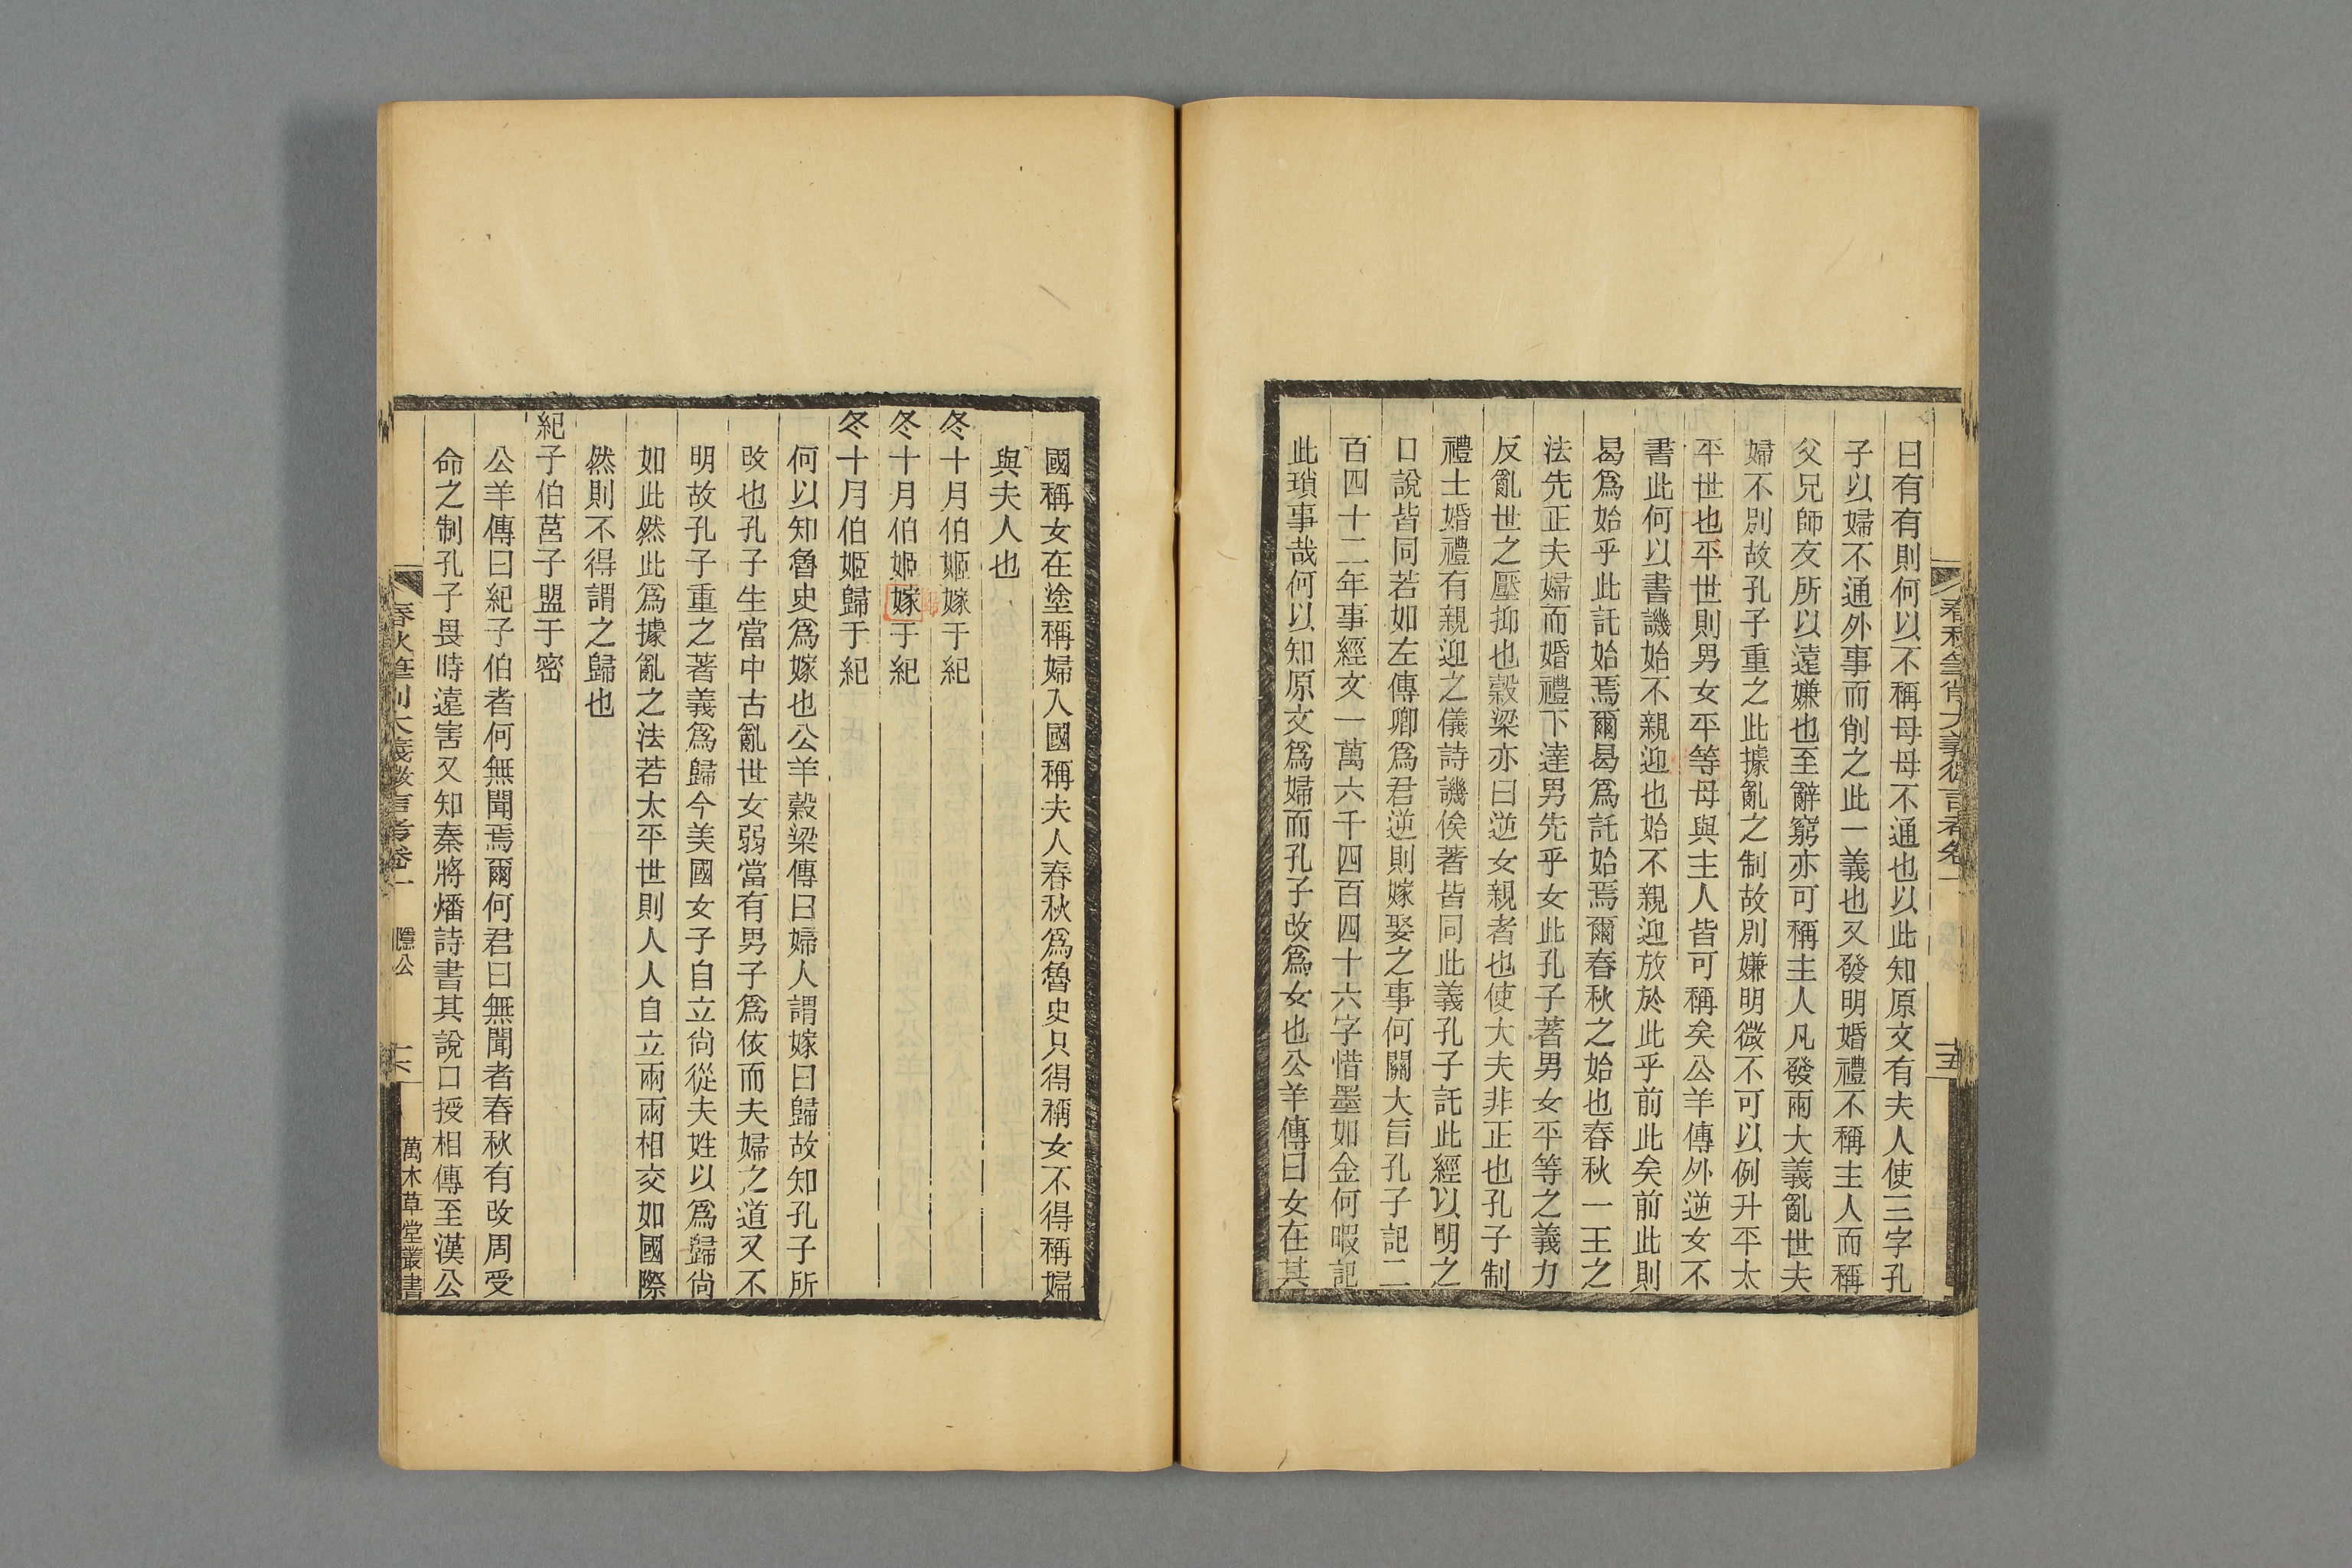 曰有有則何以不稱母母不通也以此知原文有夫人使三字孔
子以婦不通外事而削之此一義也又發明婚禮不稱主人而稱
父兄師友所以遠嫌也至辭窮亦可稱主人凡發兩大義亂世夫
婦不別故孔子重之此據亂之制故別嫌明微不可以例升平太
平世也平世則男女平等母與主人皆可稱矣公羊傳外逆女不
書此何以書譏始不親迎也始不親迎昉於此乎前此矣前此則
曷爲始乎此託始焉爾曷爲託始焉爾春秋之始也春秋一王之
法先正夫婦而婚禮下達男先乎女此孔子著男女平等之義力
反亂世之壓抑也榖梁亦曰逆女親者也使大夫非正也孔子制
禮士婚禮有親迎之儀詩譏俟著皆同此義孔子託此經以明之
口說皆同若如左傳卿爲君逆則嫁娶之事何關大旨孔子記二
百四十二年事經文一萬六千四百四十六字惜墨如金何暇記
此瑣事哉何以知原文爲婦而孔子改爲女也公羊傳曰女在其
國稱女在塗稱婦入國稱夫人春秋爲魯史只得稱女不得稱婦
與夫人也
冬十月伯姬嫁于紀
冬十月伯姬嫁于紀
冬十月伯姬歸于紀
何以知魯史爲嫁也公羊榖梁傳曰婦人謂嫁曰歸故知孔子所
改也孔子生當中古亂世女弱當有男子爲依而夫婦之道又不
明故孔子重之著義爲歸今美國女子自立尙從夫姓以爲歸尙
如此然此爲據亂之法若太平世則人人自立兩兩相交如國際
然則不得謂之歸也
紀子伯莒子盟于密
公羊傳曰紀子伯者何無聞焉爾何君曰無聞者春秋有改周受
命之制孔子畏時遠害又知秦將燔詩書其說口授相傳至漢公
春秋筆削大義微言考卷一
隱公
十六
萬木草堂叢書